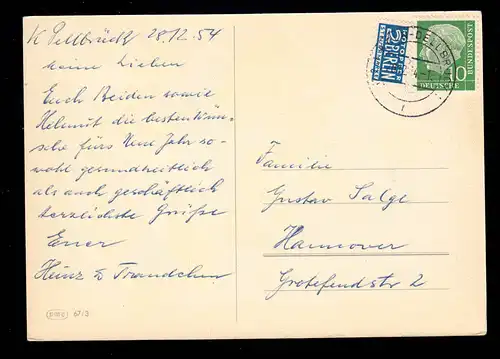 K Dellbrück 28.12.54
Meine Lieben
Euch Beiden sowie
Helmut die besten Wün-
sche fürs Neue Jahr so-
wohl gesundheitlich
als auch geschäftlich
herzlichste Grüße
Euer
Heinz &
67/3
2 NOTOPFER
BERLIN
STEUERMARKE
DELLBR
10
DEUTSCHE
BUNDESPOST
Familie
Gustav Salge
Hannover
Grotefendstr 2